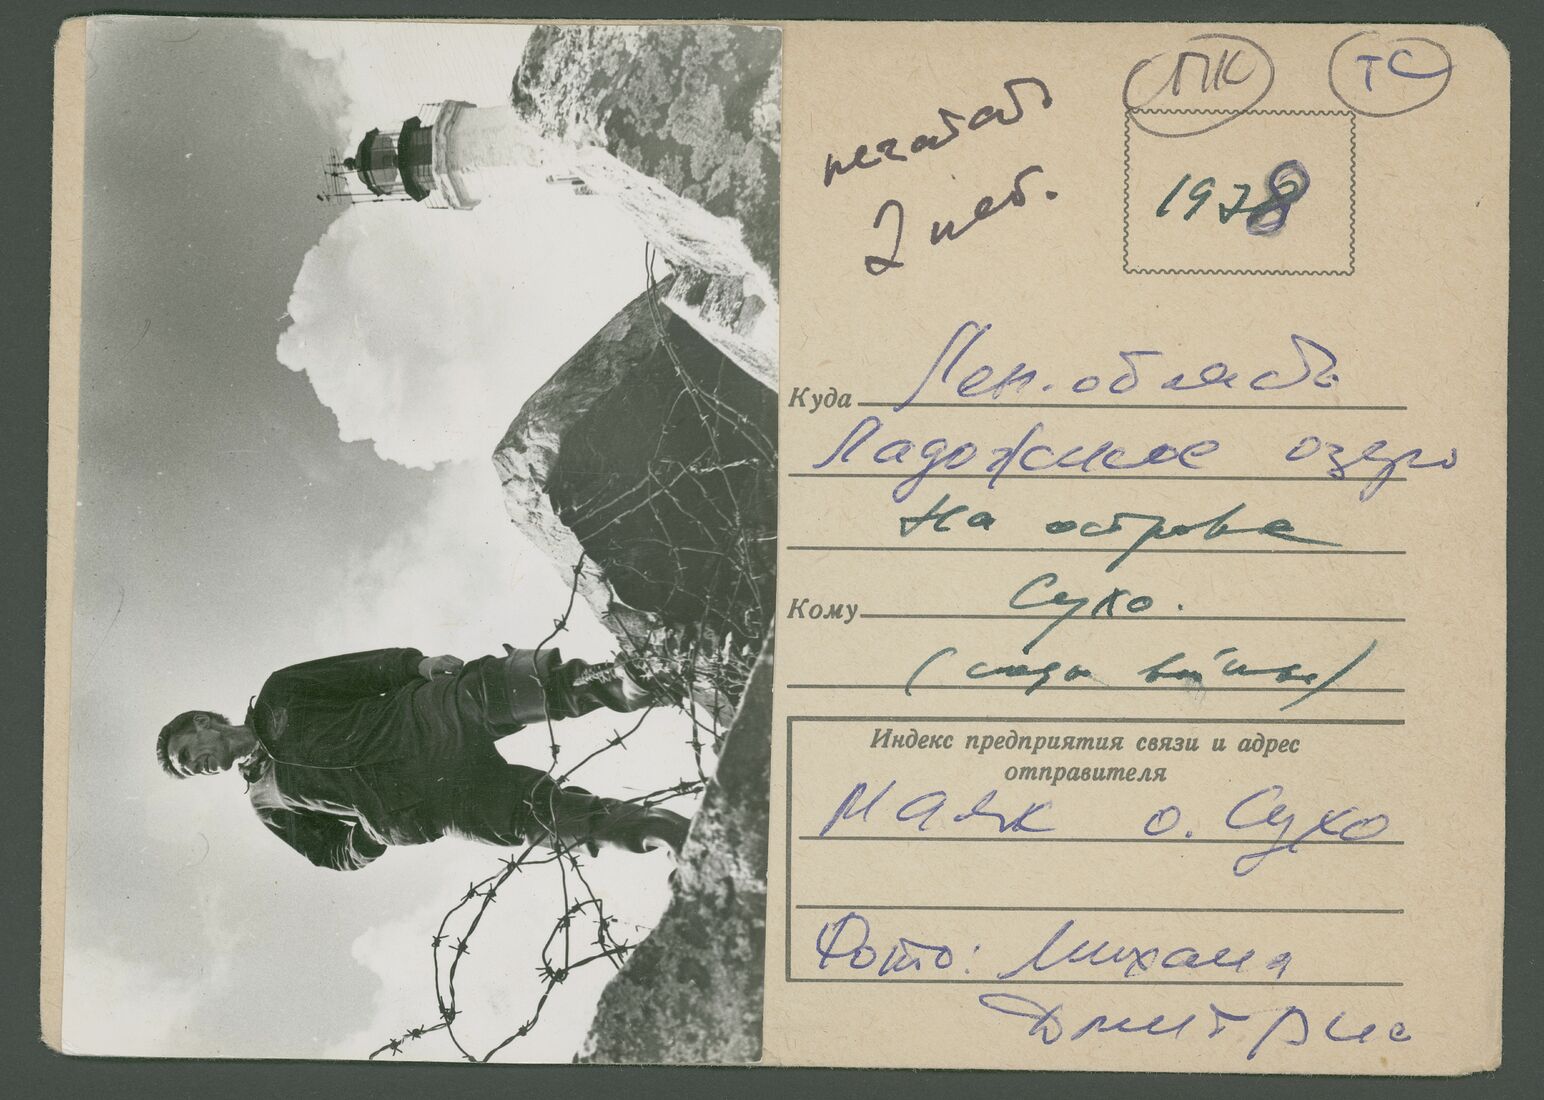 ПК
ТС
печатать
2 нег.
1978
Куда Лен. область
Ладожское озеро
На острове
Кому Сухо.
(следы войны)
Индекс предприятия связи и адрес
отправителя
Маяк о. Сухо
Фото: Михаила
Дмитриева